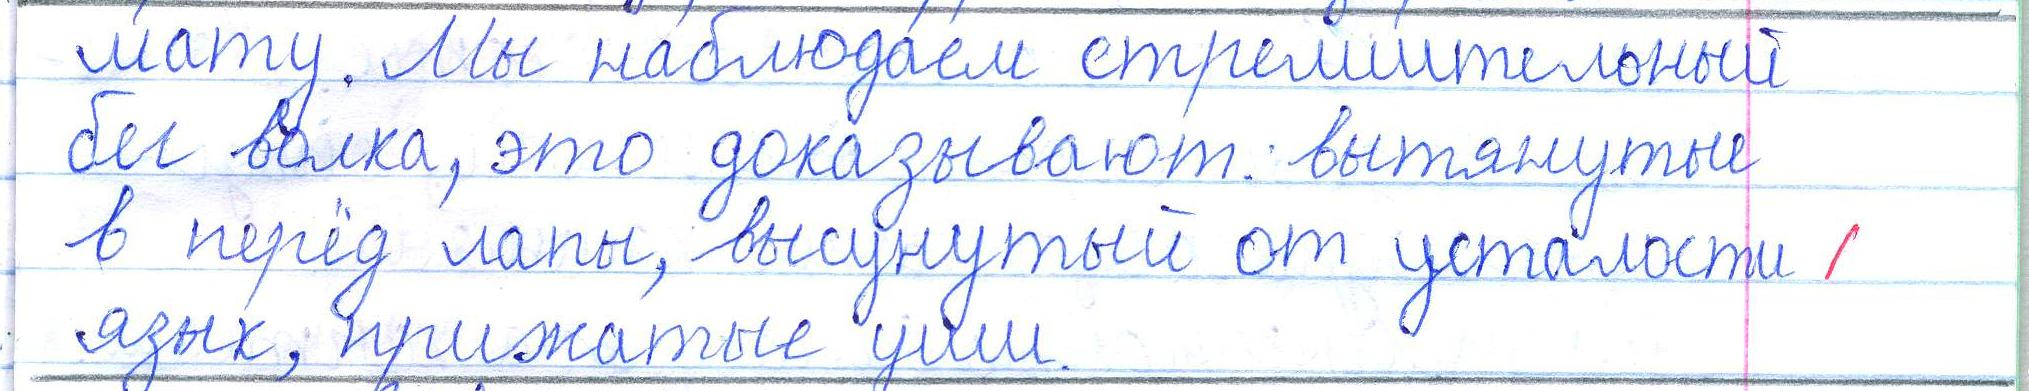 мату. Мы наблюдаем стремительный
бег волка, это доказывают: вытянутые
в перёд лапы, высунутый от усталости
язык, прижатые уши.